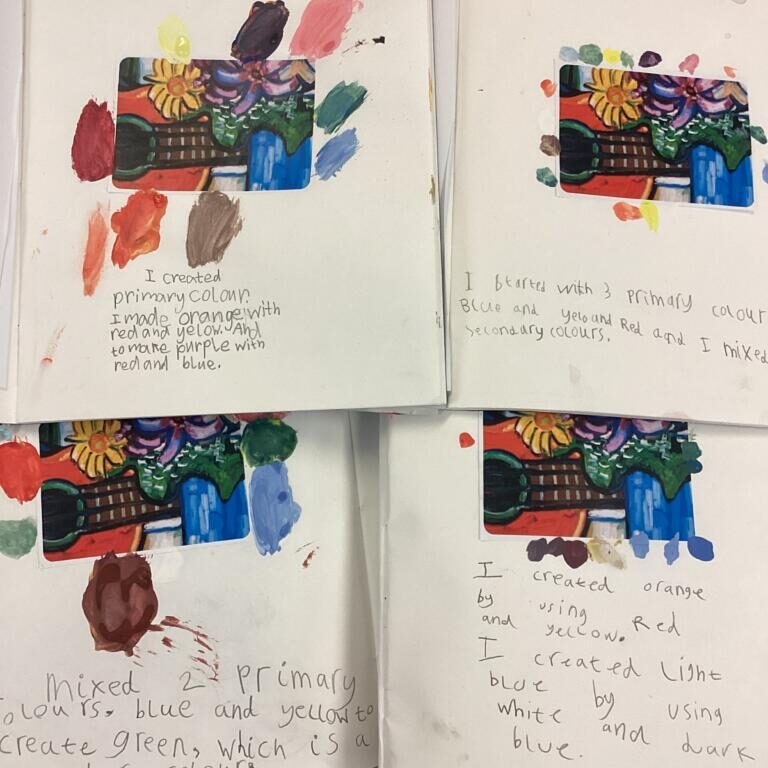 I created
primary colour.
I made orange with
red and yelow. And
to make purple with
red and blue.
I started with 3 primary colour
Blue and yelo and Red and I mixed
secondary colours.
mixed 2 primary
olours, blue and yellow to
create green, which is a
I created orange
by using Red
and yellow.
I created Light
blue by using
white and dark
blue.